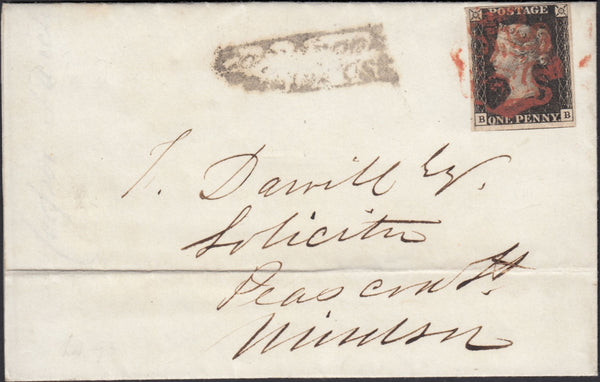 POSTAGE
B ONE PENNY B
T. Darvill Esq.
Solicitor
Peascod St.
Windsor